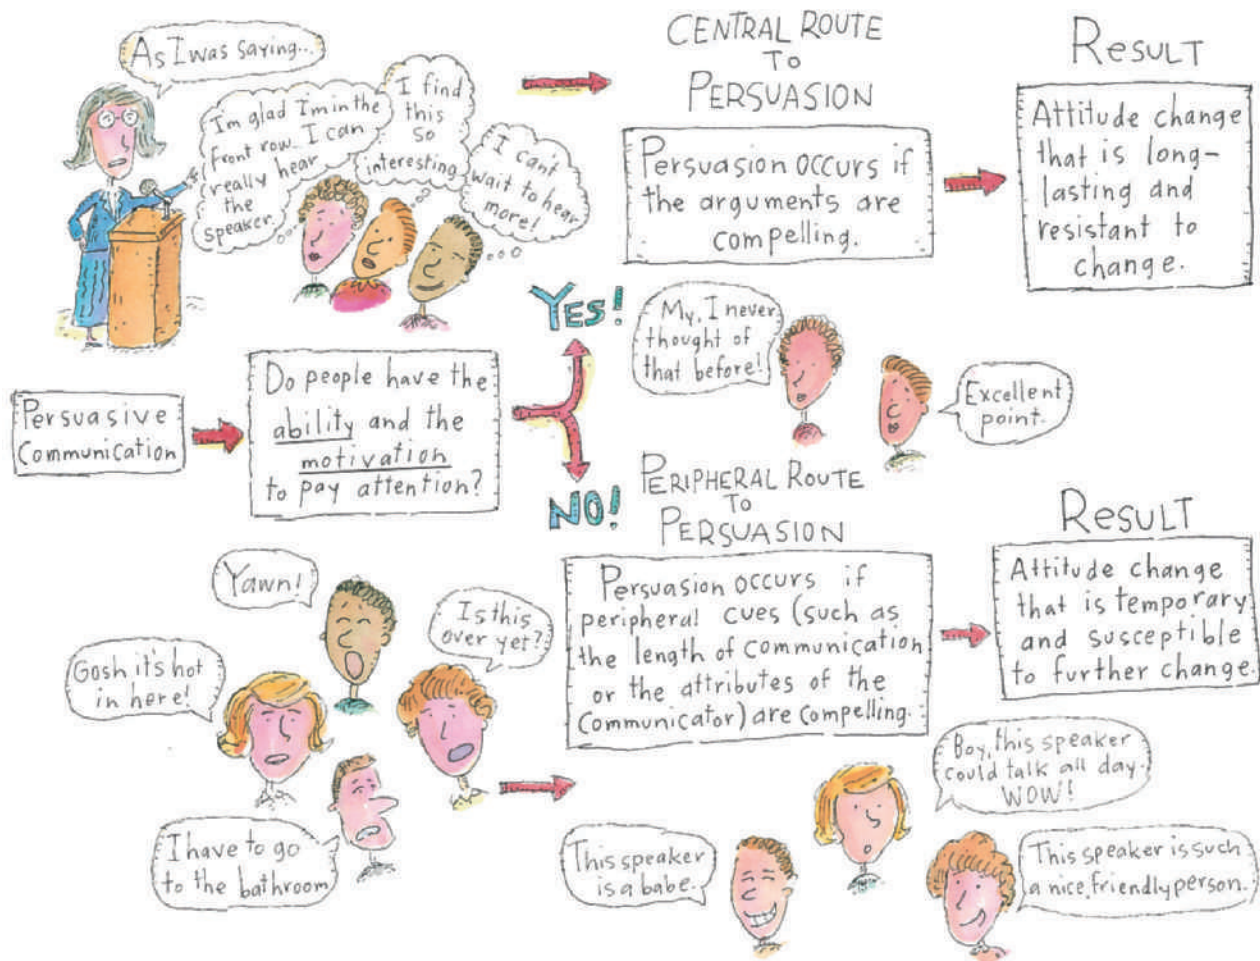 As I was saying...
I'm glad I'm in the
front row. I can
really hear
the
speaker.
I find
this
so
interesting
I can't
wait to hear
more!
CENTRAL ROUTE
TO
PERSUASION
Persuasion occurs if
the arguments are
compelling.
RESULT
Attitude change
that is long-
lasting and
resistant to
change.
YES!
My, I never
thought of
that before!
Excellent
point.
Persuasive
Communication
Do people have the
ability and the
motivation
to pay attention?
NO!
PERIPHERAL ROUTE
TO
PERSUASION
Persuasion occurs if
peripheral cues (such as
the length of communication
or the attributes of the
communicator) are compelling.
RESULT
Attitude change
that is temporary
and susceptible
to further change.
Yawn!
Is this
over yet?
Gosh it's hot
in here!
I have to go
to the bathroom
This speaker
is a babe.
Boy, this speaker
could talk all day.
WOW!
This speaker is such
a nice, friendly person.